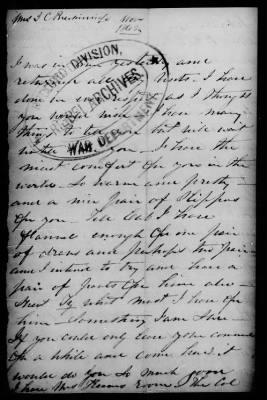 Mrs J. C. Breckinridge Nov
1862
I was in town yesterday and
returned all visits. I have
done in every respect as I thought
you would wish. I have many
things to tell you but will wait
until I see you. I have the
most comfort for you in the
world. So warm and pretty
and a nice pair of slippers
for you. Tell Col I have
flannel enough for one pair
of draws and perhaps two pair
and I intend to try and have a
pair of pants for him also
what must I have for
him something I am sure
If you could only leave your command
for a while and come here it
would do you so much good
I have Mrs room & the Col
3RD DIVISION,
ARCHIVES
WAR DEP